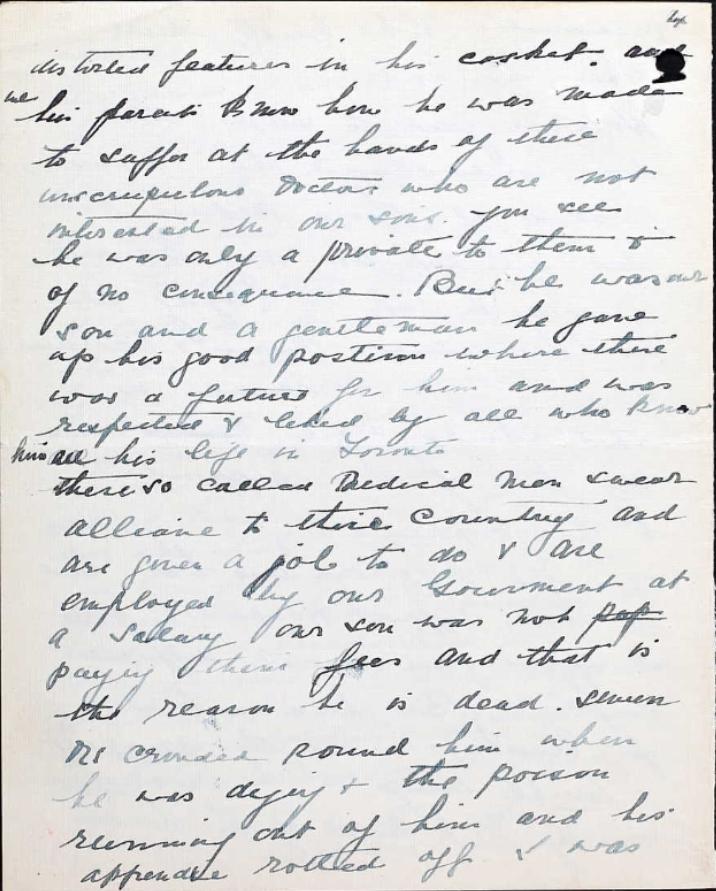 distorted features in his casket. and
we his parents know how he was made
to suffer at the hands of these
unscrupulous Doctors who are not
interested in our sons. you see
he was only a private to them &
of no consequence. But he was our
son and a gentleman he gave
up his good position where there
was a future for him and was
respected & liked by all who know
him all his life in Toronto
these so called Medical Men swear
alliance to their Country and
are given a job to do & are
employed by our Gouvrment at
a salary our son was not pap
paying them fees and that is
the reason he is dead. seven
Drs crowded round him when
he was dying & the poison
running out of him and his
appendix rotted off I was